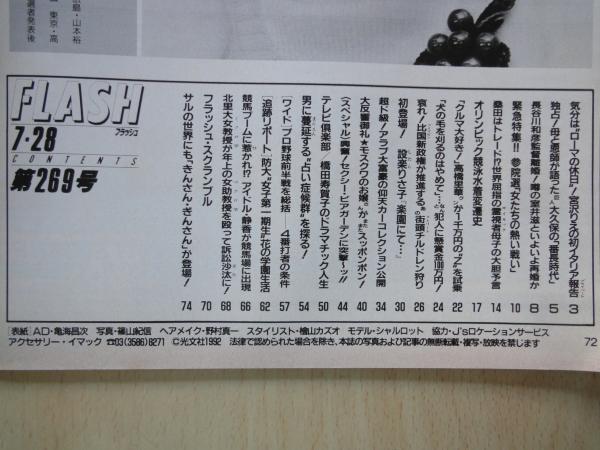 島・山本裕
東京・高
選者発表後
FLASH
フラッシュ
7・28
CONTENTS
第269号
気分は“ローマの休日”！宮沢りえの初イタリア報告 3
独占！母と恩師が語った 大久保の「番長時代」 5
長谷川和彦監督離婚！噂の室井滋といよいよ再婚か 8
緊急特集!! 参院選“女たちの熱い戦い” 10
桑田はトレード！？世界屈指の霊視者母子の大胆予言 14
オリンピック競泳水着変遷史 17
「クルマ大好き！」高橋里華が1千万円の を試乗 22
「犬の毛を刈るのはやめて…」“犯人に懸賞金100万円” 24
哀れ！比国新政権が推進する“街頭チルドレン狩り” 26
初登場！ 設楽りさ子「楽園にて…」 30
超ド級！アラブ大富豪の仰天カーコレクション公開 34
大反響御礼★モスクワのお嬢さんがまたスッポンポン！ 40
〈スペシャル〉興奮！セクシー・ビアガーデンに突撃〜ッ!! 44
テレビ倶楽部 橋田寿賀子のドラマチック人生 50
男に蔓延する“占い症候群”を探る！ 54
［ワイド］プロ野球前半戦を総括——4番打者の条件 57
［追跡リポート］防大“女子第一期生”花の学園生活 62
競馬ブームに惹かれ！？アイドル・静香が競馬場に出現 66
北里大女教授が年上の女助教授を殴って訴訟沙汰に！ 68
フラッシュ・スクランブル 70
サルの世界にも“きんさん・ぎんさん”が登場！ 74
［表紙］AD・亀海昌次 写真・篠山紀信 ヘアメイク・野村真一 スタイリスト・檜山カズオ モデル・シャルロット 協力・J'sロケーションサービス
アクセサリー・イマック ☎03(3586)8271 ©光文社1992 法律で認められた場合を除き、本誌の写真および記事の無断転載・複写・放映を禁じます
72